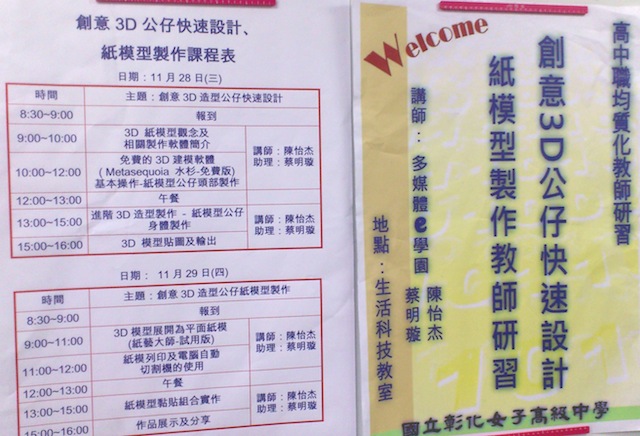 創意 3D 公仔快速設計、
紙模型製作課程表
日期：11 月 28 日(三)
時間 主題：創意 3D 造型公仔快速設計
8:30~9:00 報到
9:00~10:00 3D 紙模型觀念及
相關製作軟體簡介
講師：陳怡杰
助理：蔡明璇
10:00~12:00 免費的 3D 建模軟體
( Metasequoia 水杉-免費版)
基本操作-紙模型公仔頭部製作
12:00~13:00 午餐
13:00~15:00 進階 3D 造型製作 - 紙模型公仔
身體製作
講師：陳怡杰
助理：蔡明璇
15:00~16:00 3D 模型貼圖及輸出
日期： 11 月 29 日(四)
時間 主題：創意 3D 造型公仔紙模型製作
8:30~9:00 報到
9:00~11:00 3D 模型展開為平面紙模
(紙藝大師-試用版)
講師：陳怡杰
助理：蔡明璇
11:00~12:00 紙模列印及電腦自動
切割機的使用
12:00~13:00 午餐
13:00~15:00 紙模型黏貼組合實作
講師：陳怡杰
助理：蔡明璇
15:00~16:00 作品展示及分享
Welcome
高中職均質化教師研習
創意3D公仔快速設計
紙模型製作教師研習
講師：多媒體e學園 陳怡杰
蔡明璇
地點：生活科技教室
國立彰化女子高級中學